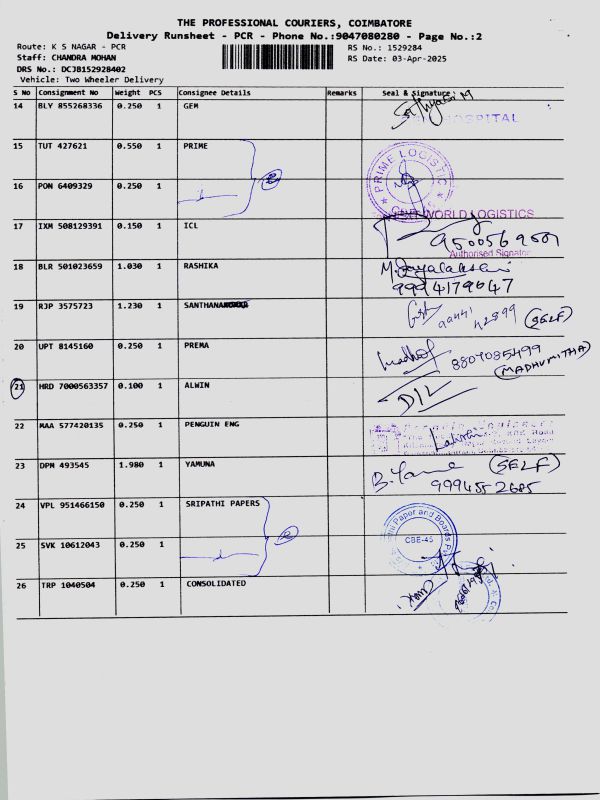 THE PROFESSIONAL COURIERS, COIMBATORE
Delivery Runsheet - PCR - Phone No.:9047080280 - Page No.:2
Route: K S NAGAR - PCR RS No.: 1529284
Staff: CHANDRA MOHAN RS Date: 03-Apr-2025
DRS No.: DCJB152928402
Vehicle: Two Wheeler Delivery
S No Consignment No Weight PCS Consignee Details Remarks Seal & Signature
14 BLY 855268336 0.250 1 GEM
HOSPITAL
15 TUT 427621 0.550 1 PRIME
PRIME LOGISTIC
16 PON 6409329 0.250 1
WORLD LOGISTICS
17 IXM 508129391 0.150 1 ICL
9500569507
Authorised Signator
18 BLR 501023659 1.030 1 RASHIKA
9994179647
19 RJP 3575723 1.230 1 SANTHANA
(SELF)
20 UPT 8145160 0.250 1 PREMA
8807085499
(MADHUMITHA)
21 HRD 7000563357 0.100 1 ALWIN
D/L
22 MAA 577420135 0.250 1 PENGUIN ENG
23 DPM 493545 1.980 1 YAMUNA
(SELF)
9994552685
24 VPL 951466150 0.250 1 SRIPATHI PAPERS
Paper and Boards
CBE-45
25 SVK 10612043 0.250 1
26 TRP 1040504 0.250 1 CONSOLIDATED